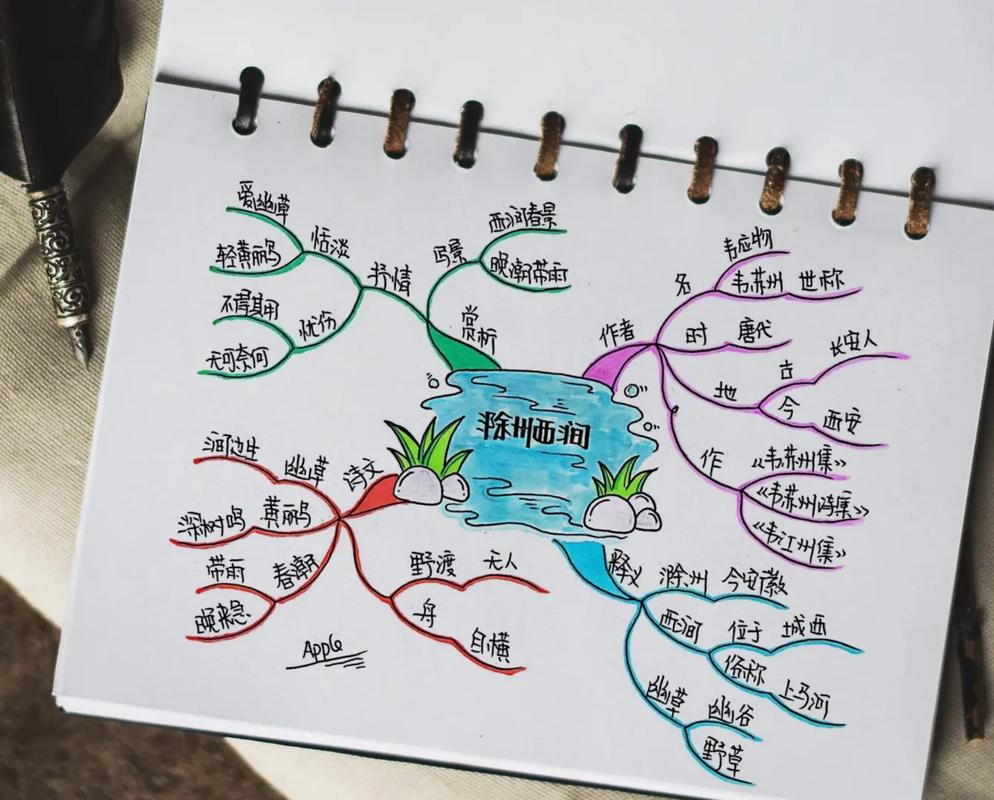 滁州西涧
作者
名
韦应物
韦苏州 世称
时 唐代
地
古 长安人
今 西安
作
《韦苏州集》
《韦苏州诗集》
《韦江州集》
释义
滁州 今安徽
西河 位于 城西
俗称 上马河
幽草 幽谷
野草
诗文
幽草 河边生
黄丽鸟 深树鸣
春潮
带雨
晚来急
野渡 无人
舟 自横
赏析
写景
西涧春景
晚潮带雨
抒情
恬淡
爱幽草
轻黄丽鸟
忧伤
不得其用
无可奈何
Apple